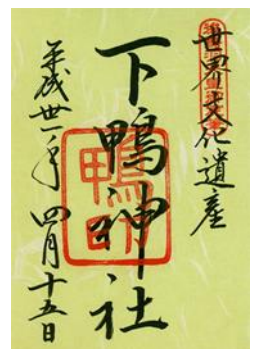 世界文化遺産
下鴨神社
平成卅一年 四月十五日